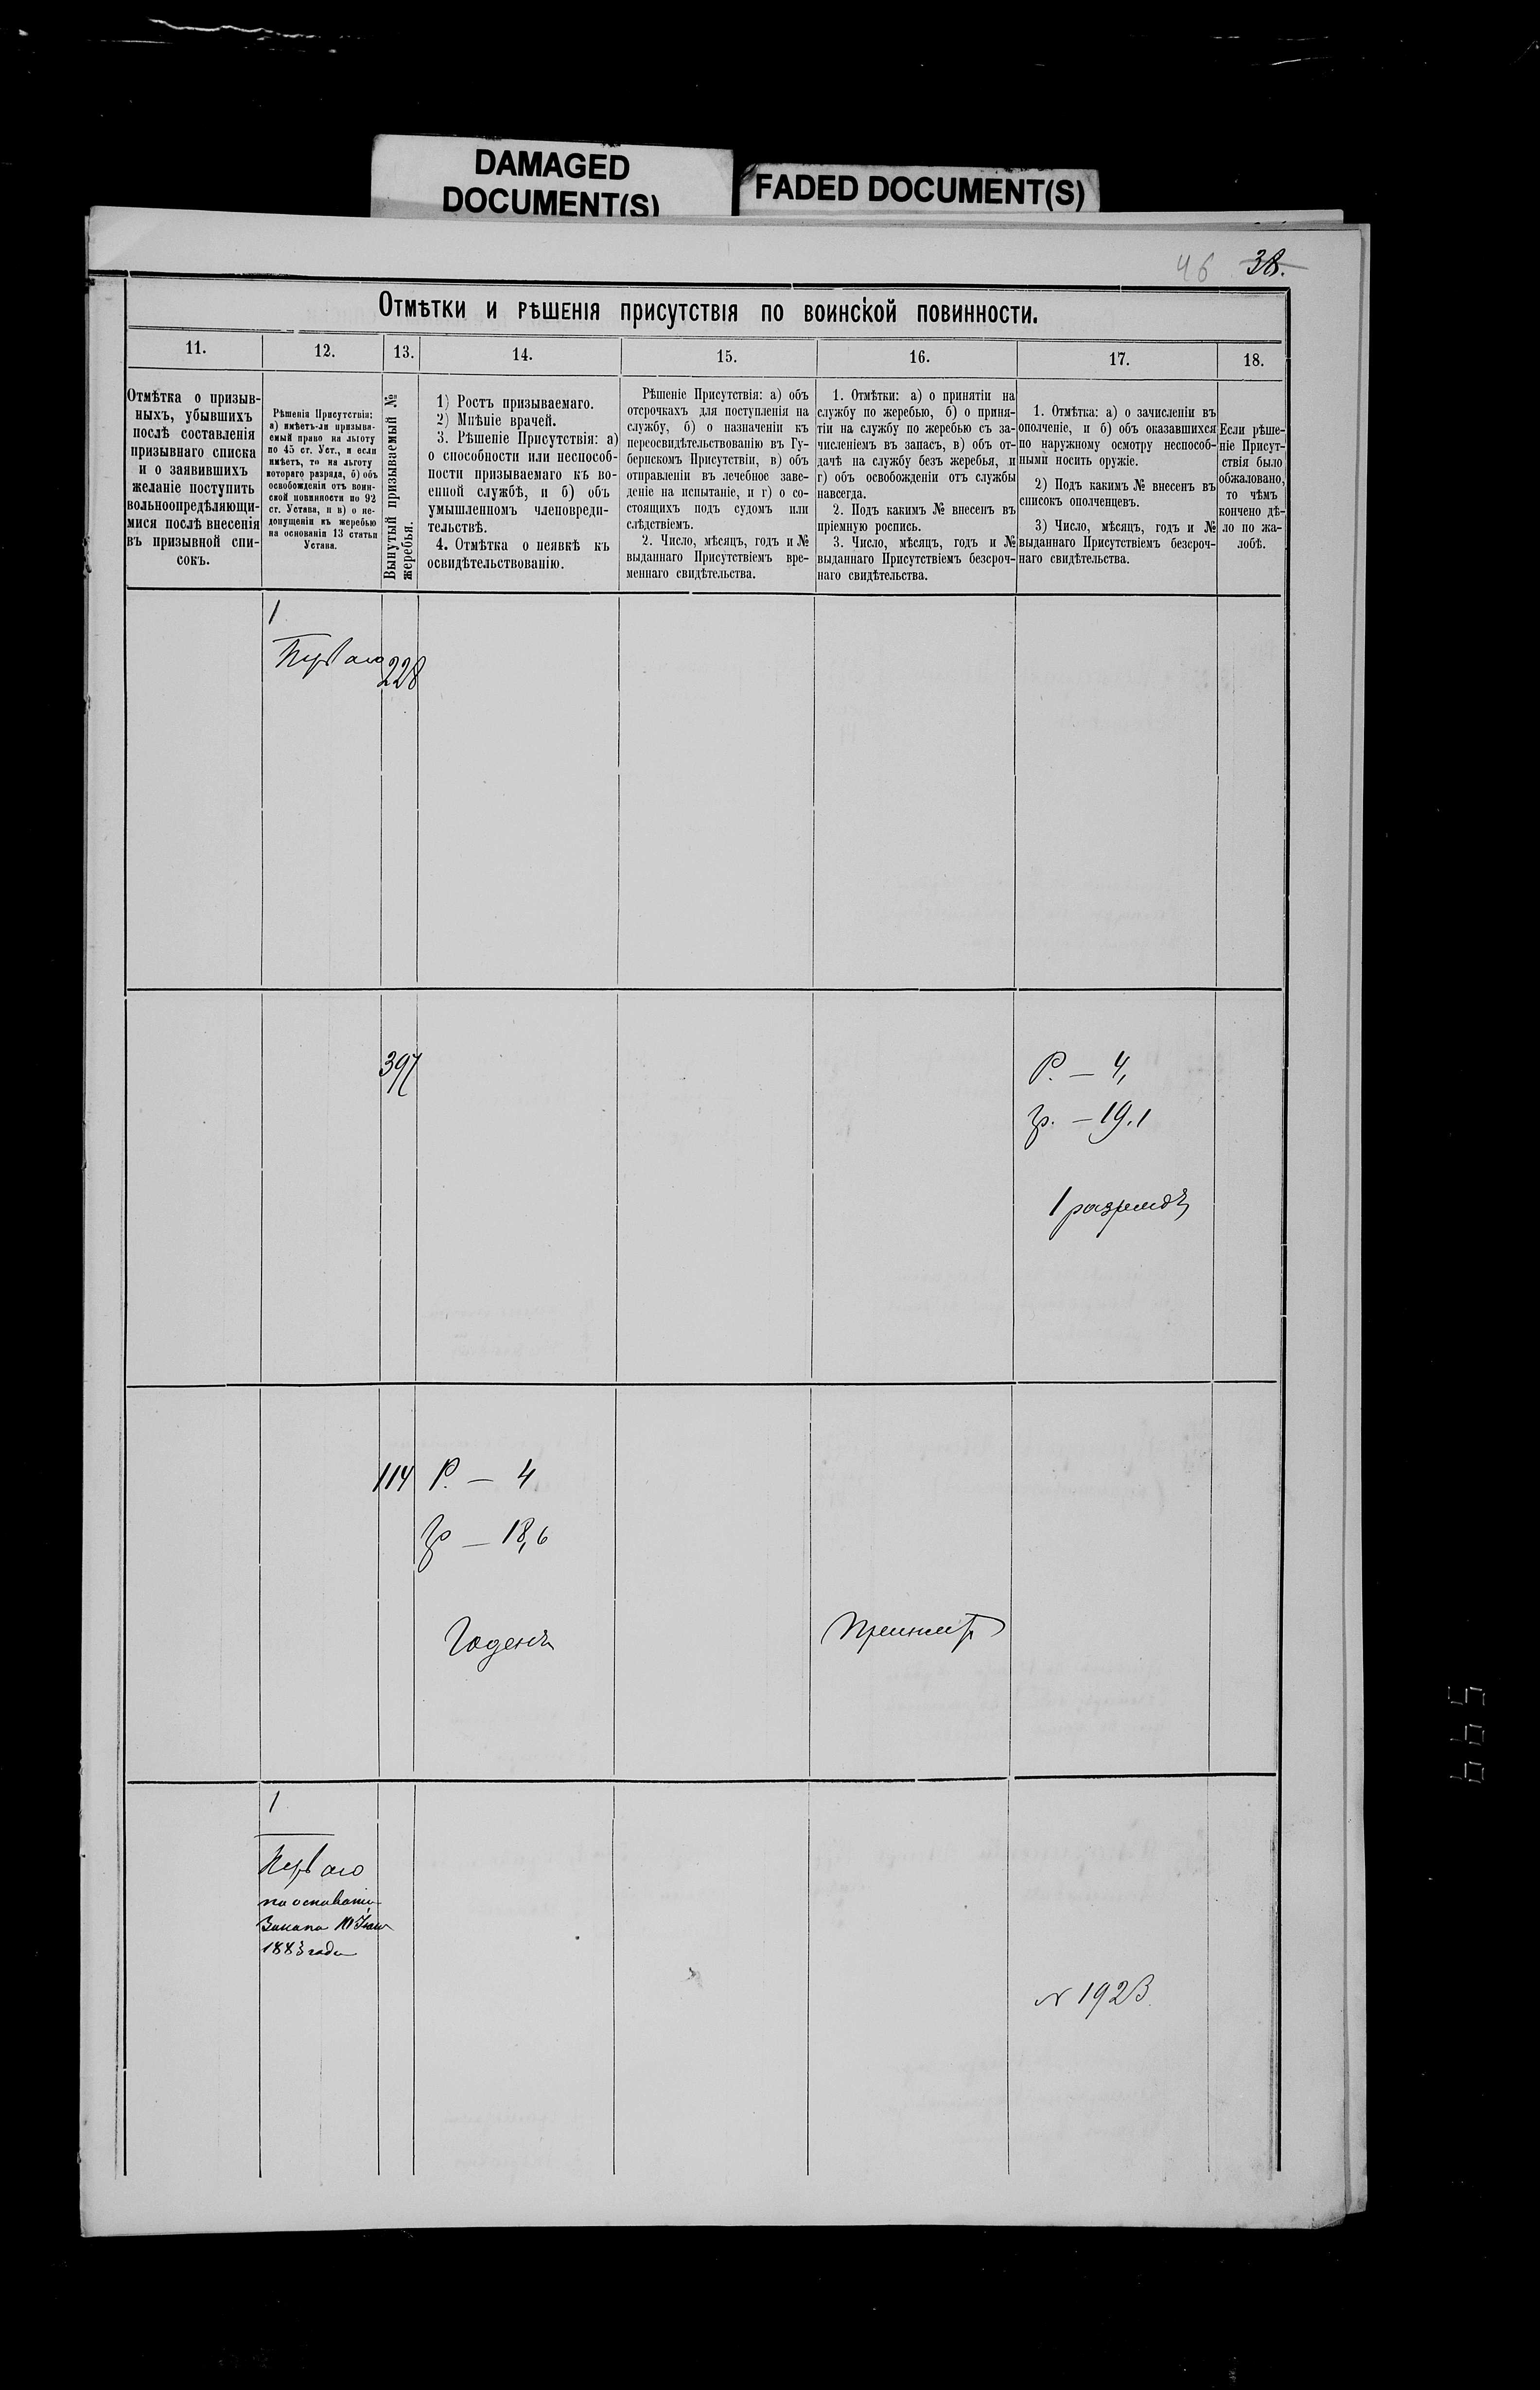 DAMAGED
DOCUMENT(S)
FADED DOCUMENT(S)
46 38.
Отмѣтки и рѣшенія присутствія по воинской повинности.
11. 12. 13. 14. 15. 16. 17. 18.
Отмѣтка о призыв-
ныхъ, убывшихъ
послѣ составленія
призывнаго списка
и о заявившихъ
желаніе поступить
вольноопредѣляющи-
мися послѣ внесенія
въ призывной спи-
сокъ.
Рѣшенія Присутствія:
а) имѣетъ-ли призыва-
емый право на льготу
по 45 ст. Уст., и если
имѣетъ, то на льготу
котораго разряда, б) объ
освобожденіи отъ воин-
ской повинности по 92
ст. Устава, и в) о не-
допущеніи къ жеребью
на основаніи 13 статьи
Устава.
Вынутый призываемый №
жеребья.
1) Ростъ призываемаго.
2) Мнѣніе врачей.
3. Рѣшеніе Присутствія: а)
о способности или неспособ-
ности призываемаго къ во-
енной службѣ, и б) объ
умышленномъ членовреди-
тельствѣ.
4. Отмѣтка о неявкѣ къ
освидѣтельствованію.
Рѣшеніе Присутствія: а) объ
отсрочкахъ для поступленія на
службу, б) о назначеніи къ
переосвидѣтельствованію въ Гу-
бернскомъ Присутствіи, в) объ
отправленіи въ лечебное заве-
деніе на испытаніе, и г) о со-
стоящихъ подъ судомъ или
слѣдствіемъ.
2. Число, мѣсяцъ, годъ и №
выданнаго Присутствіемъ вре-
меннаго свидѣтельства.
1. Отмѣтки: а) о принятіи на
службу по жеребью, б) о приня-
тіи на службу по жеребью съ за-
численіемъ въ запасъ, в) объ от-
дачѣ на службу безъ жеребья, и
г) объ освобожденіи отъ службы
навсегда.
2. Подъ какимъ № внесенъ въ
пріемную роспись.
3. Число, мѣсяцъ, годъ и №
выданнаго Присутствіемъ безсроч-
наго свидѣтельства.
1. Отмѣтка: а) о зачисленіи въ
ополченіе, и б) объ оказавшихся
по наружному осмотру неспособ-
ными носить оружіе.
2) Подъ какимъ № внесенъ въ
списокъ ополченцевъ.
3) Число, мѣсяцъ, годъ и №
выданнаго Присутствіемъ безсроч-
наго свидѣтельства.
Если рѣше-
ніе Присут-
ствія было
обжаловано,
то чѣмъ
кончено дѣ-
ло по жа-
лобѣ.
1
Перваго 228
397
Р. — 4,
гр. — 19.1
1 разрядъ
114 Р. — 4
гр — 18,6
Годенъ
Принятъ
1
Перваго
на основаніи
Закона
1883 года
N 1923.